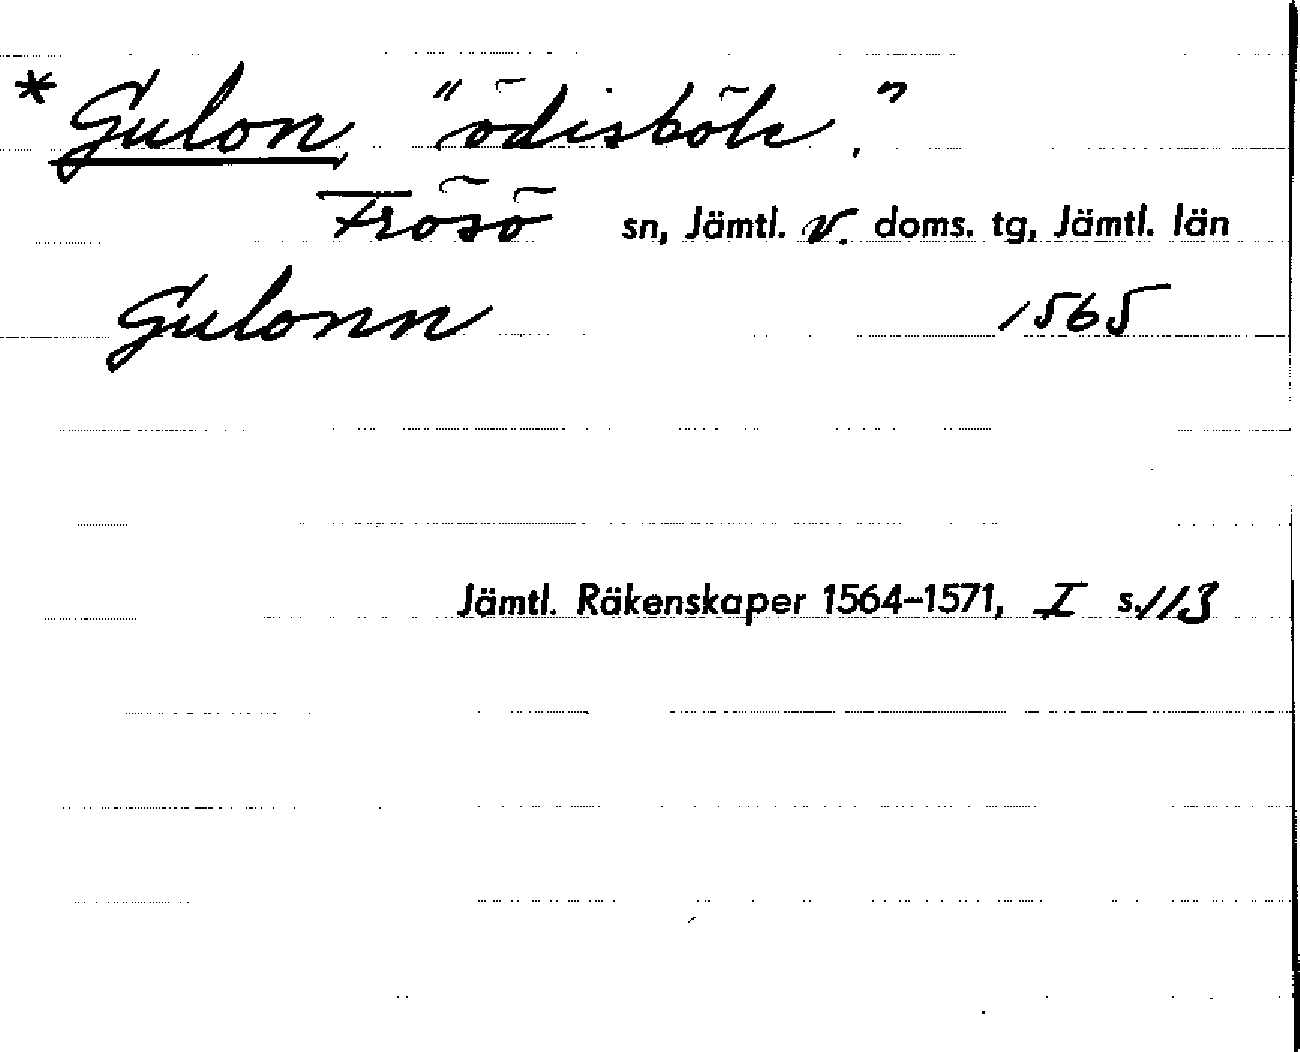 * Gulon, "ödisböle",
Frösö sn, Jämtl. v. doms. tg, Jämtl. län
Gulonn 1565
Jämtl. Räkenskaper 1564-1571, I s. 113